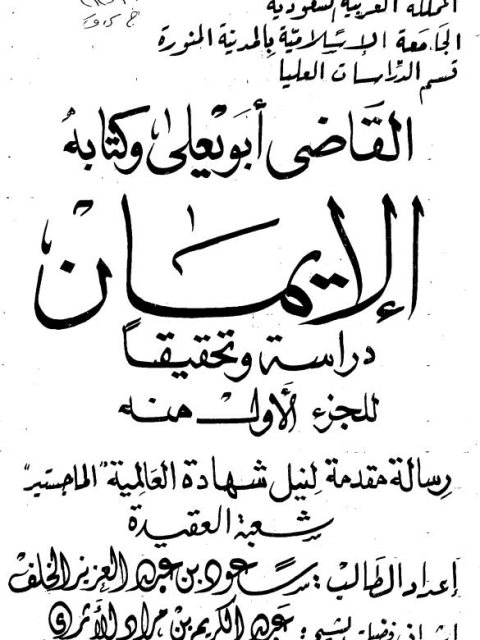 المملكة العربية السعودية
الجامعة الإسلامية بالمدينة المنورة
قسم الدراسات العليا
القاضي أبو يعلى وكتابه
الإيمان
دراسة وتحقيقاً
للجزء الأول منه
رسالة مقدمة لنيل شهادة العالمية "الماجستير"
شعبة العقيدة
إعداد الطالب: سعود بن عبد العزيز الخلف
عبد الكريم بن مراد الأثري